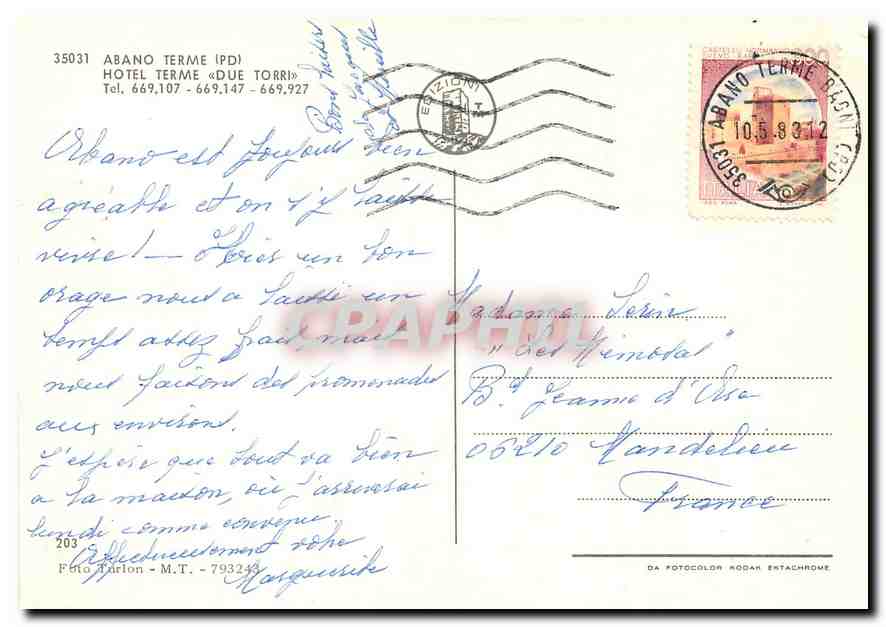 35031 ABANO TERME (PD)
HOTEL TERME «DUE TORRI»
Tel. 669.107 - 669.147 - 669.927
Abano est toujours bien
agréable et on s'y laisse
vivre! — Hier un bon
orage nous a laissé un
temps assez frais, mais
nous faisons des promenades
aux environs.
J'espère que tout va bien
a la maison, où j'arriverai
lundi comme convenu.
Affectueusement votre
Marguerite
203
Foto Turlon - M.T. - 793243
EDIZIONI
35031 ABANO TERME BAGNI (PD)
10.5.83.12
CPAPHIL
Madame Serin
"Les Mimosas"
Bd Jeanne d'Arc
06210 Mandelieu
France
DA FOTOCOLOR KODAK EKTACHROME